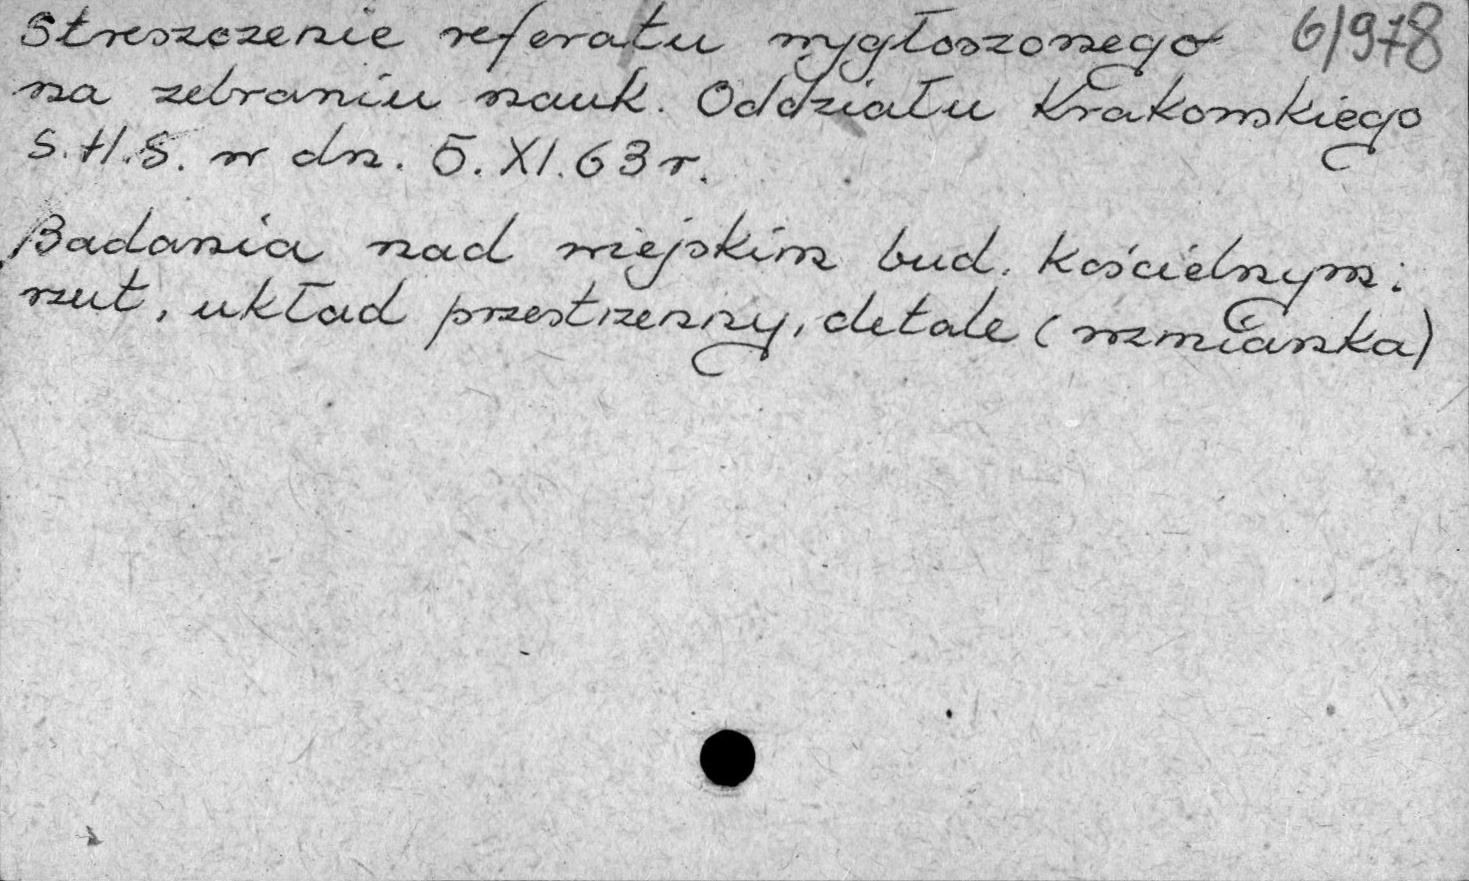 Streszczenie referatu wygłoszonego 6/978
na zebraniu nauk. Oddziału Krakowskiego
S.H.S. w dn. 5.XI.63 r.
Badania nad wiejskim bud. kościelnym:
rzut, układ przestrzenny, detale (wzmianka)